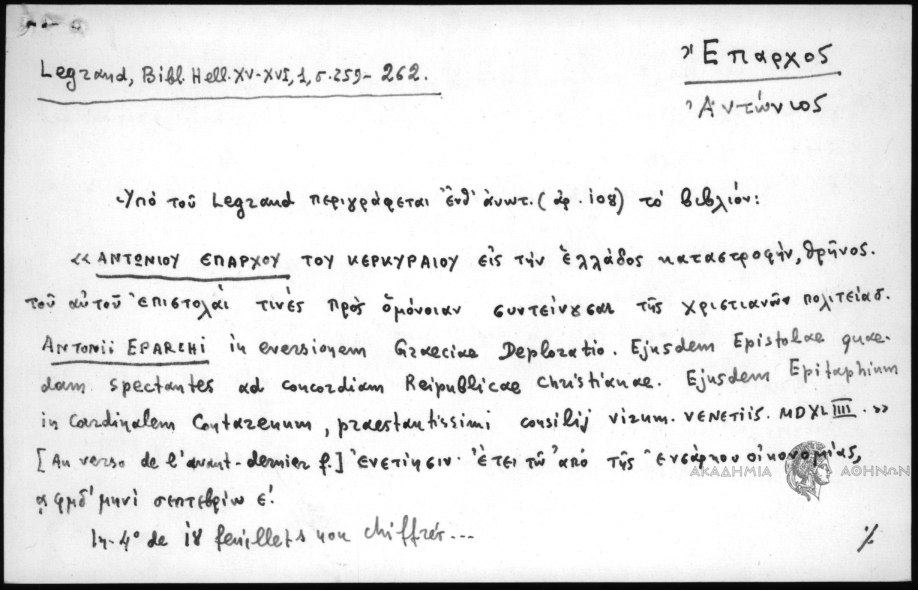 Legrand, Bibl. Hell. XV-XVI, 1, σ. 259-262.
Ἔπαρχος
Ἀντώνιος
Ὑπό τοῦ Legrand περιγράφεται ἔνθ' ἀνωτ. (ἀρ. 108) τό βιβλίον:
«ΑΝΤΩΝΙΟΥ ΕΠΑΡΧΟΥ ΤΟΥ ΚΕΡΚΥΡΑΙΟΥ εἰς τήν Ἑλλάδος καταστροφήν, θρῆνος.
τοῦ αὐτοῦ ἐπιστολαί τινές πρός ὁμόνοιαν συντείνουσαι τῆς χριστιανῶν πολιτείας.
ANTONII EPARCHI in eversionem Graeciae Deploratio. Ejusdem Epistolae quae-
dam spectantes ad concordiam Reipublicae Christianae. Ejusdem Epitaphium
in Cardinalem Contarenum, praestantissimi consilij virum. VENETIIS. MDXLIIII.»
[Au verso de l'avant-dernier f.] Ἐνετίησιν. Ἔτει τῷ ἀπό τῆς ἐνσάρκου οἰκονομίας,
͵αφμδ' μηνί σεπτεβρίῳ ε'.
In-4° de 18 feuillets non chiffrés...
./.
ΑΚΑΔΗΜΙΑ ΑΘΗΝΩΝ